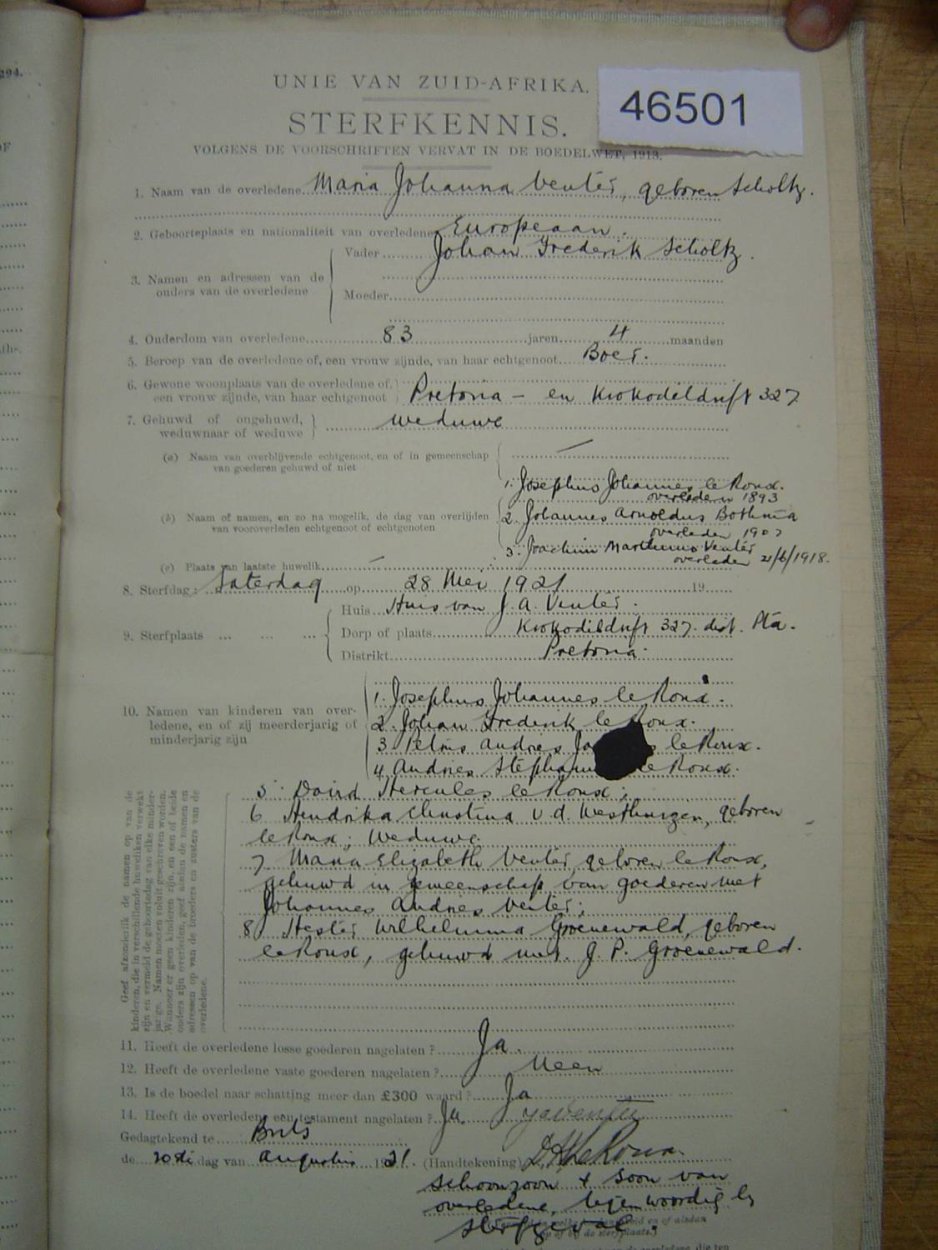 294.
UNIE VAN ZUID-AFRIKA.
46501
STERFKENNIS.
VOLGENS DE VOORSCHRIFTEN VERVAT IN DE BOEDELWET, 1913.
1. Naam van de overledene Maria Johanna Venter, geboren Scholtz.
2. Geboorteplaats en nationaliteit van overledene Europeaan.
3. Namen en adressen van de ouders van de overledene
Vader Johan Frederik Scholtz.
Moeder
4. Ouderdom van overledene 83 jaren 4 maanden
5. Beroep van de overledene of, een vrouw zijnde, van haar echtgenoot Boer.
6. Gewone woonplaats van de overledene of,
een vrouw zijnde, van haar echtgenoot Pretoria - en Krokodildrift 327
7. Gehuwd of ongehuwd,
weduwnaar of weduwe weduwe
(a) Naam van overblijvende echtgenoot, en of in gemeenschap
van goederen gehuwd of niet
(b) Naam of namen, en zo na mogelik, de dag van overlijden
van vooroverleden echtgenoot of echtgenoten
1. Josephus Johannes le Roux.
overleden 1893
2. Johannes Arnoldus Bothma
overleden 190
3. Joachim Marthinus Venter
overleden 21/6/1918.
(c) Plaats van laatste huwelik
8. Sterfdag: Saterdag op 28 Mei 1921 19
9. Sterfplaats
Huis Huis van J. A. Venter.
Dorp of plaats Krokodildrift 327. dist. Pta.
Distrikt Pretoria.
10. Namen van kinderen van over-
ledene, en of zij meerderjarig of
minderjarig zijn
1. Josephus Johannes le Roux.
2. Johan Frederik le Roux.
3 Petrus Andries le Roux.
4 Andries le Roux.
5 David Hercules le Roux;
6 Hendrika Christina v.d. Westhuizen, geboren
le Roux; Weduwe
7 Maria Elizabeth Venter, geboren le Roux,
gehuwd in gemeenschap van goederen met
Johannes Andries Venter;
8 Hester Wilhelmina Groenewald, geboren
le Roux, gehuwd met J. P. Groenewald.
Geef afzonderlik de namen op van de
kinderen, die in verschillende huweliken verwekt
zijn en vermeld de geboortedag van elke minder-
jarige. Namen moeten voluit geschreven worden.
Wanneer er geen kinderen zijn, en een of beide
ouders zijn overleden, geef alsdan de namen en
adressen op van de broeders en zusters van de
overledene.
11. Heeft de overledene losse goederen nagelaten? Ja
12. Heeft de overledene vaste goederen nagelaten? Neen
13. Is de boedel naar schatting meer dan £300 waard? Ja
14. Heeft de overledene een testament nagelaten? Ja. J A Venter
Gedagtekend te Brits
de 20ste dag van Augustus 1921 (Handtekening) D. H. le Roux
schoonzoon + zoon van
overledene, tegenwoordig by
sterfgeval.